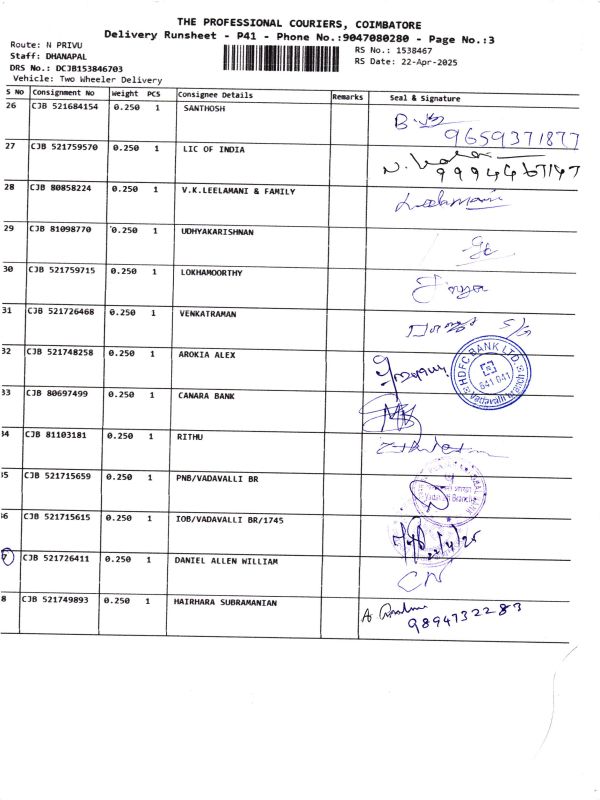 THE PROFESSIONAL COURIERS, COIMBATORE
Delivery Runsheet - P41 - Phone No.:9047080280 - Page No.:3
Route: N PRIVU
RS No.: 1538467
Staff: DHANAPAL
RS Date: 22-Apr-2025
DRS No.: DCJB153846703
Vehicle: Two Wheeler Delivery
S No Consignment No Weight PCS Consignee Details Remarks Seal & Signature
26 CJB 521684154 0.250 1 SANTHOSH
9659371877
27 CJB 521759570 0.250 1 LIC OF INDIA
28 CJB 80858224 0.250 1 V.K.LEELAMANI & FAMILY Leelamani
29 CJB 81098770 0.250 1 UDHYAKARISHNAN
30 CJB 521759715 0.250 1 LOKHAMOORTHY
31 CJB 521726468 0.250 1 VENKATRAMAN
32 CJB 521748258 0.250 1 AROKIA ALEX
HDFC BANK LTD.
041 041
Vadavalli Branch
33 CJB 80697499 0.250 1 CANARA BANK
34 CJB 81103181 0.250 1 RITHU
35 CJB 521715659 0.250 1 PNB/VADAVALLI BR
Vadavalli Branch
36 CJB 521715615 0.250 1 IOB/VADAVALLI BR/1745
22/4/25
7 CJB 521726411 0.250 1 DANIEL ALLEN WILLIAM
8 CJB 521749893 0.250 1 HAIRHARA SUBRAMANIAN
9894732283